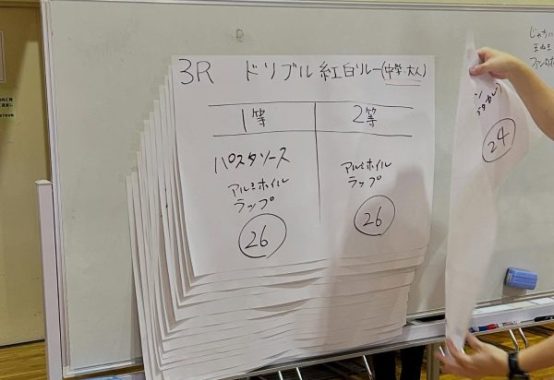 3R ドリブル紅白リレー(中学・大人)
1等 2等
パスタソース
アルミホイル
ラップ
26
アルミホイル
ラップ
26
24